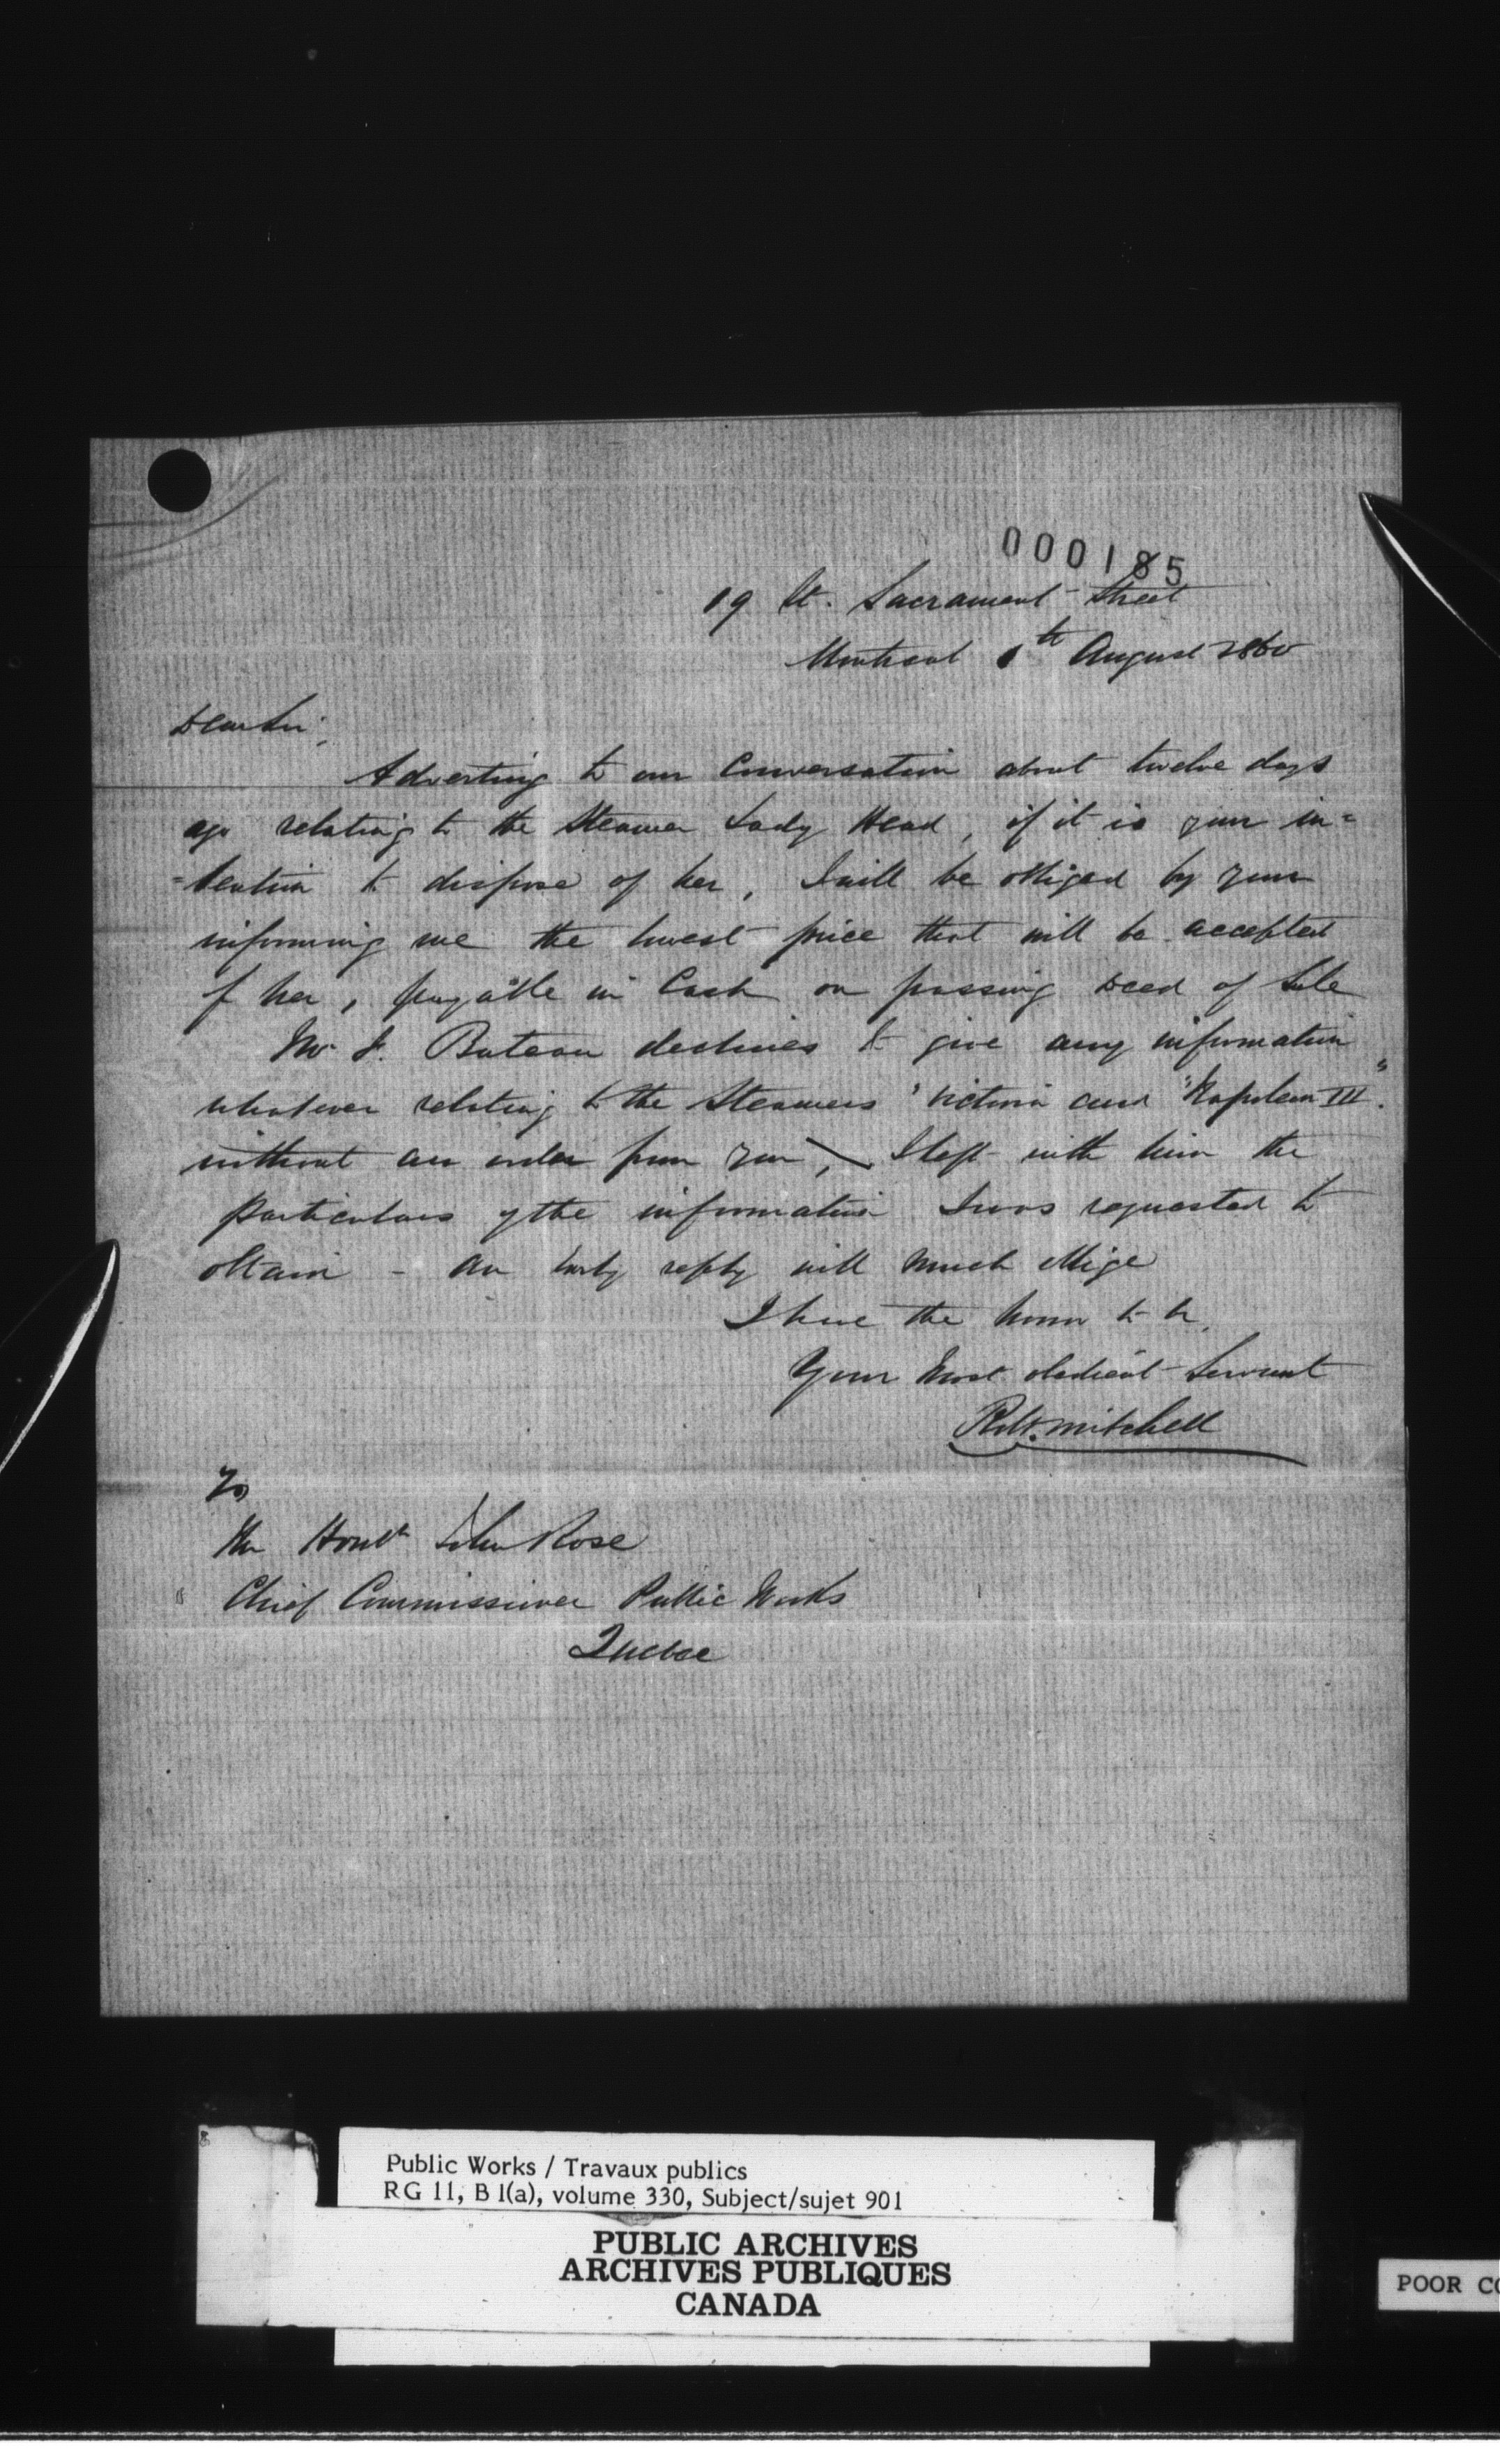 000185
19 St. Sacrament Street
Montreal th August 1860
Dear Sir,
Adverting to our Conversation about twelve days
ago relating to the Steamer Lady Head, if it is your in=
=tention to dispose of her, I will be obliged by your
informing me the lowest price that will be accepted
f her, payable in Cash on passing Deed of Sale
Mr. J. Buteau declines to give any information
whatever relating to the Steamers "Victoria and "Napoleon III".
without an order from you, I left with him the
particulars of the information I was requested to
obtain - An early reply will much oblige
I have the honor to be
Your Most obedient Servant
Robt. Mitchell
To
The Honbl John Rose
Chief Commissioner Public Works
Quebec
Public Works / Travaux publics
RG 11, B 1(a), volume 330, Subject/sujet 901
PUBLIC ARCHIVES
ARCHIVES PUBLIQUES
CANADA
POOR CO